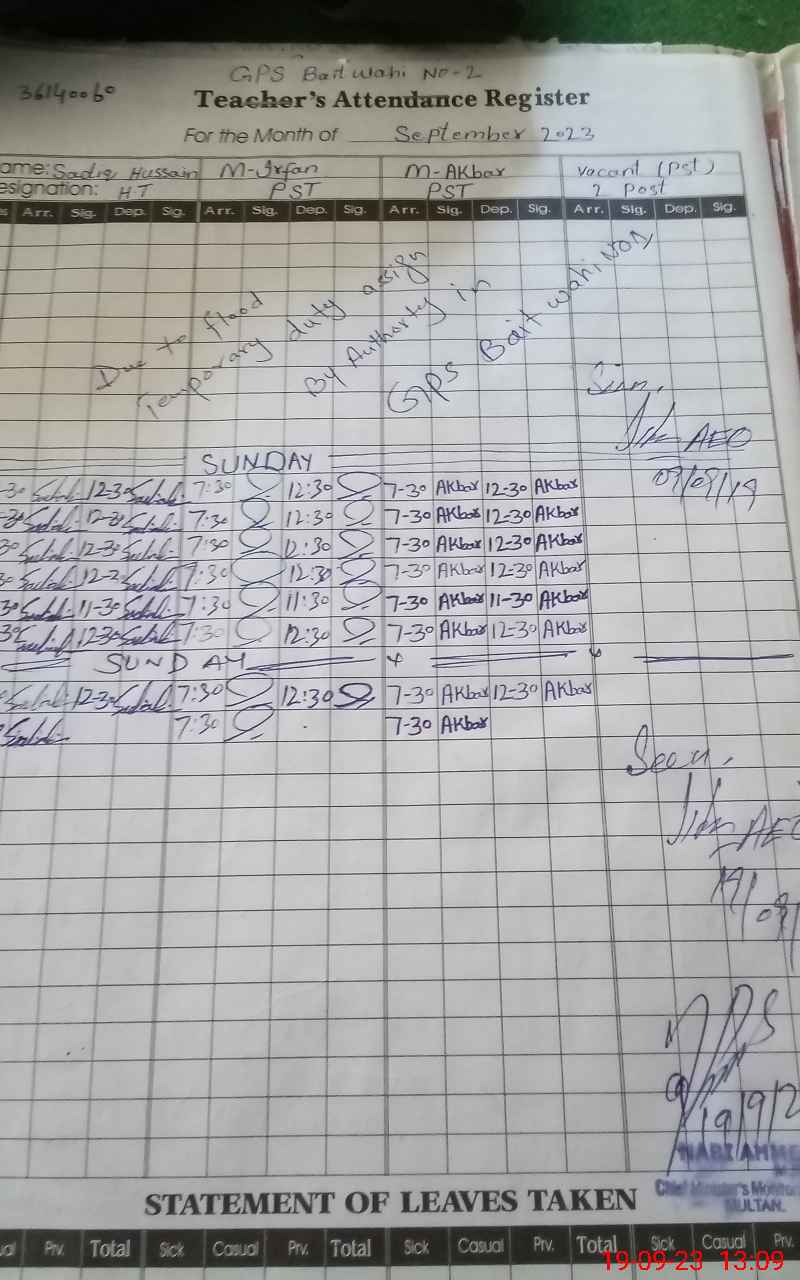 GPS Bait wahi NO-2
36140060
Teacher's Attendance Register
For the Month of September 2023
ame: Sadiq Hussain M-Irfan M-AKbar vacant (Pst)
esignation: H.T PST PST 2 Post
Arr. Sig. Dep. Sig. Arr. Sig. Dep. Sig. Arr. Sig. Dep. Sig. Arr. Sig. Dep. Sig.
Due to flood
Temporary duty assign
By Authorty in
GPS Bait wahi NO1
AEO
SUNDAY
-30 12-30 7:30 12:30 7-30 AKbar 12-30 AKbar
-30 12-30 7:30 12:30 7-30 AKbar 12-30 AKbar
30 12-30 7:30 12:30 7-30 AKbar 12-30 AKbar
30 7:30 12:30 7-30 AKbar 12-30 AKbar
30 11-30 7:30 11:30 7-30 AKbar 11-30 AKbar
30 12-30 7:30 12:30 7-30 AKbar 12-30 AKbar
SUNDAY
12-30 7:30 12:30 7-30 AKbar 12-30 AKbar
7:30 7-30 AKbar
Seen.
AEO
19/09/
19/9/2
NABI AHME
Chief Minister's Monitor
MULTAN.
STATEMENT OF LEAVES TAKEN
ual Prv. Total Sick Casual Prv. Total Sick Casual Prv. Total Sick Casual Prv.
19-09-23 13:09